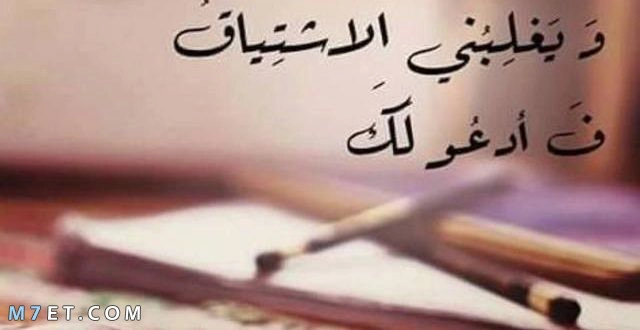 وَ يَغلِبُني الاشتِياقُ
فَ أدعُو لكَِ
M7ET.COM